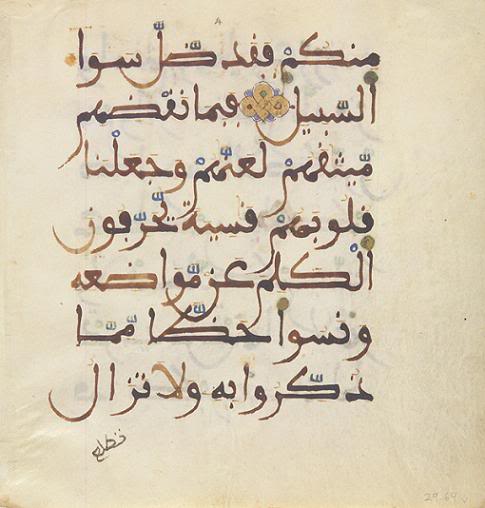 منكم فقد ضل سوا
السبيل فبما نقضهم
ميثقهم لعنهم وجعلنا
قلوبهم قسية يحرفون
الكلم عن مواضعه
ونسوا حظا مما
ذكروا به ولا تزال
تطلع
29.69